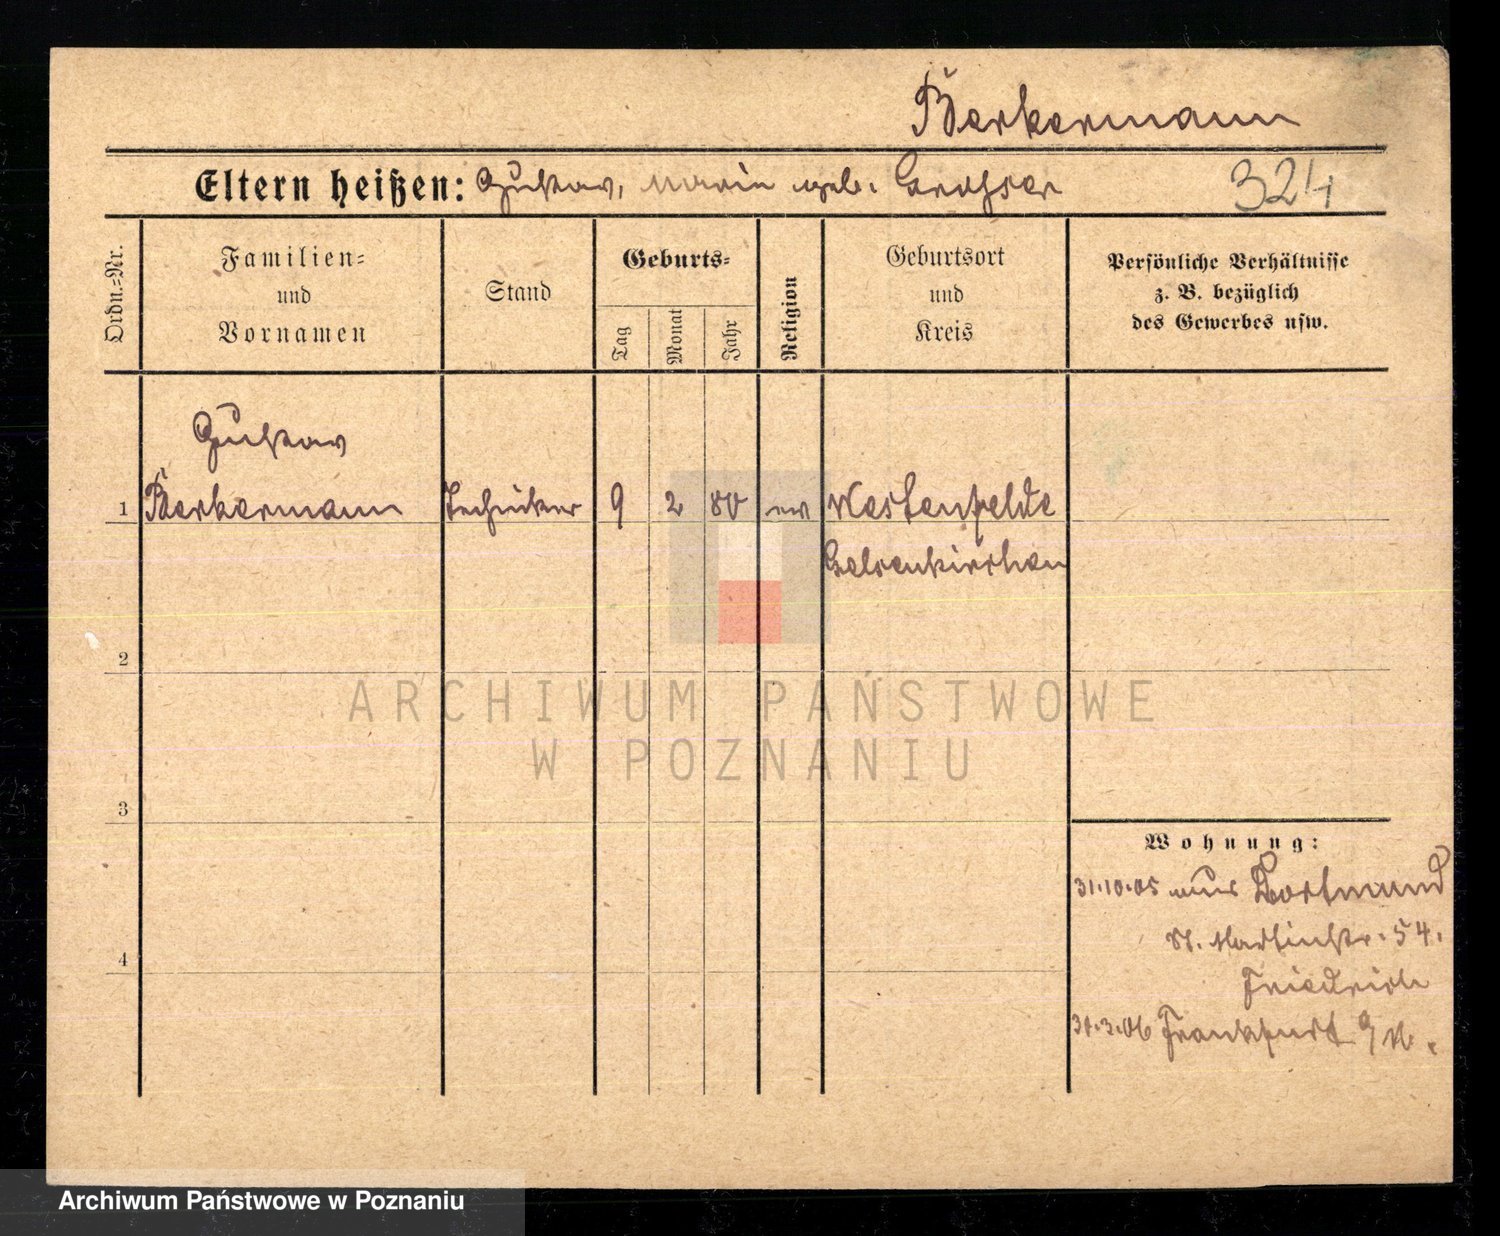 Berkermann
Eltern heißen: Gustav, Marie geb. Grosser
324
Ordn.-Nr.
Familien-
und
Vornamen
Stand
Geburts-
Tag
Monat
Jahr
Religion
Geburtsort
und
Kreis
Persönliche Verhältnisse
z. B. bezüglich
des Gewerbes usw.
Gustav
1 Berkermann Techniker 9 2 80 ev Westenfelde
Gelsenkirchen
2
ARCHIWUM PAŃSTWOWE
W POZNANIU
3
Wohnung:
31.10.05 aus Dortmund
St. Martinstr. 54.
Friedrich
4
31.3.06 Frankfurt a/M.
Archiwum Państwowe w Poznaniu